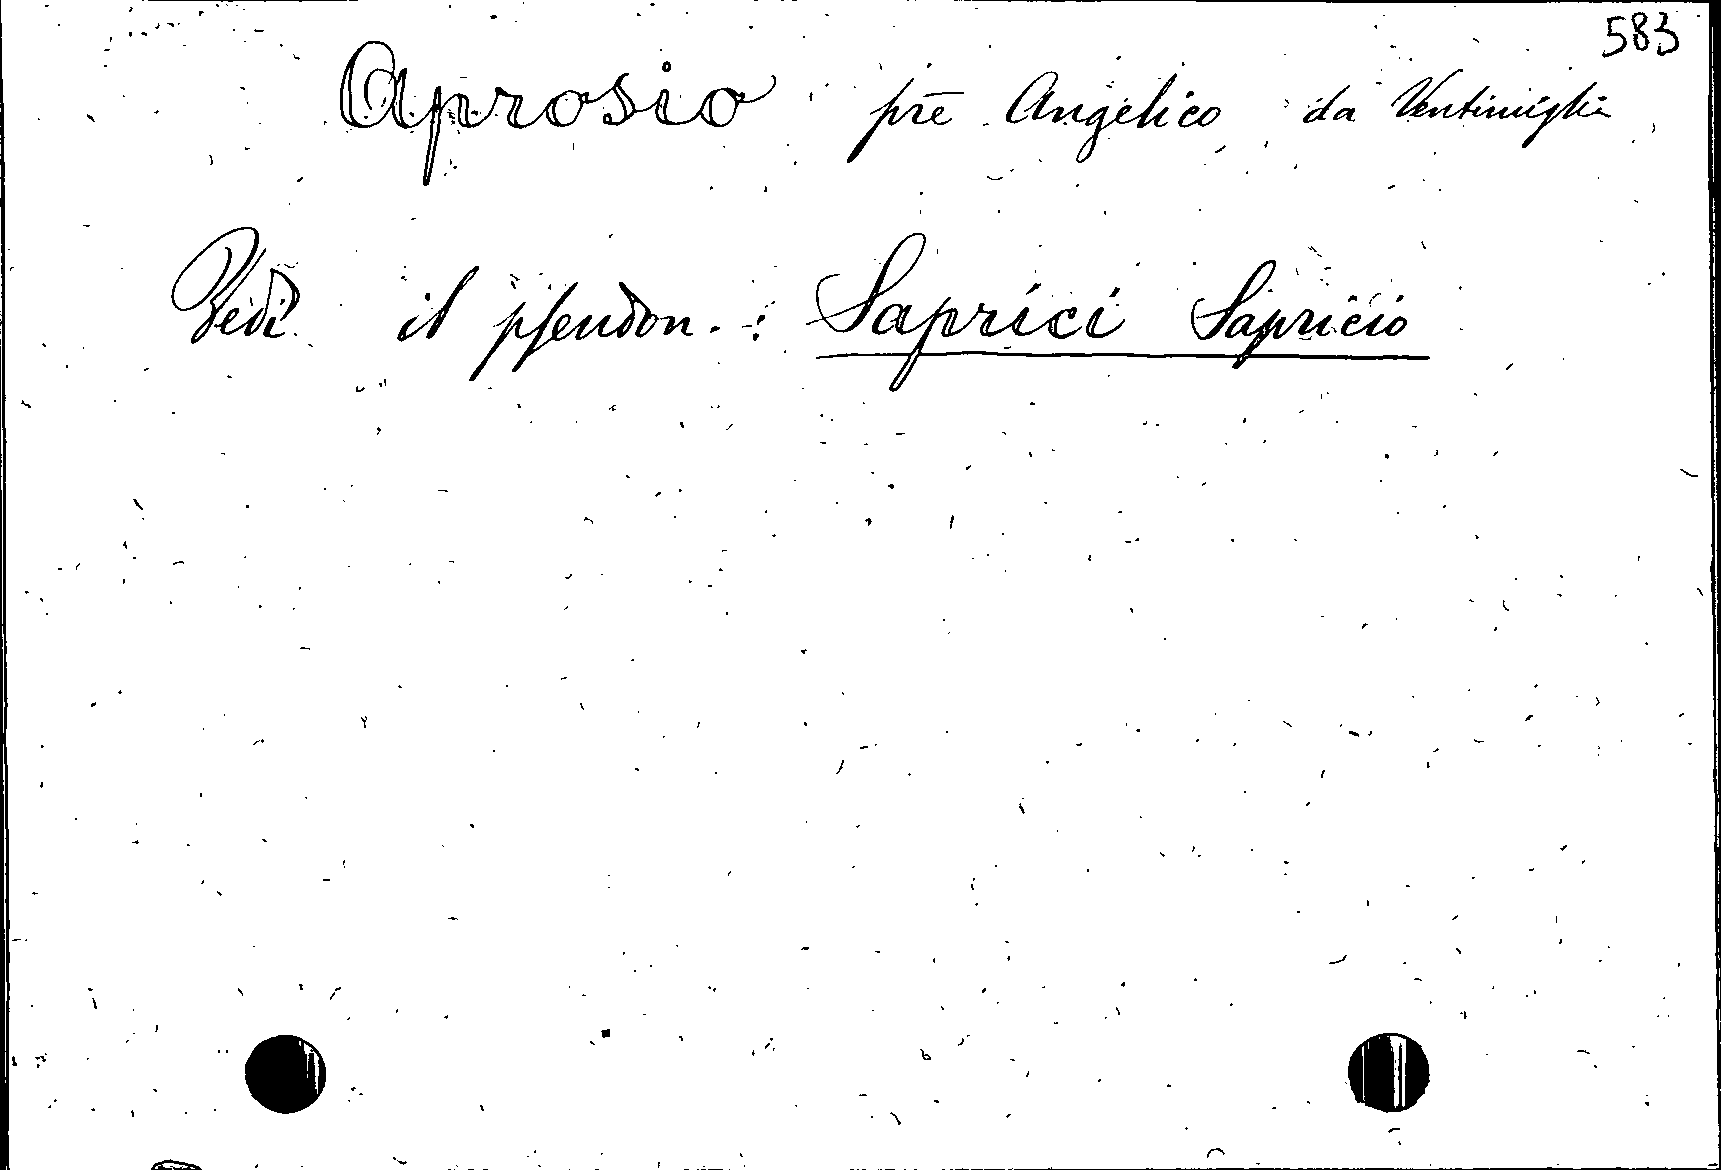 583
Aprosio prē Angelico da Ventimiglia
Vedi il pseudon. : Saprici Sapricio